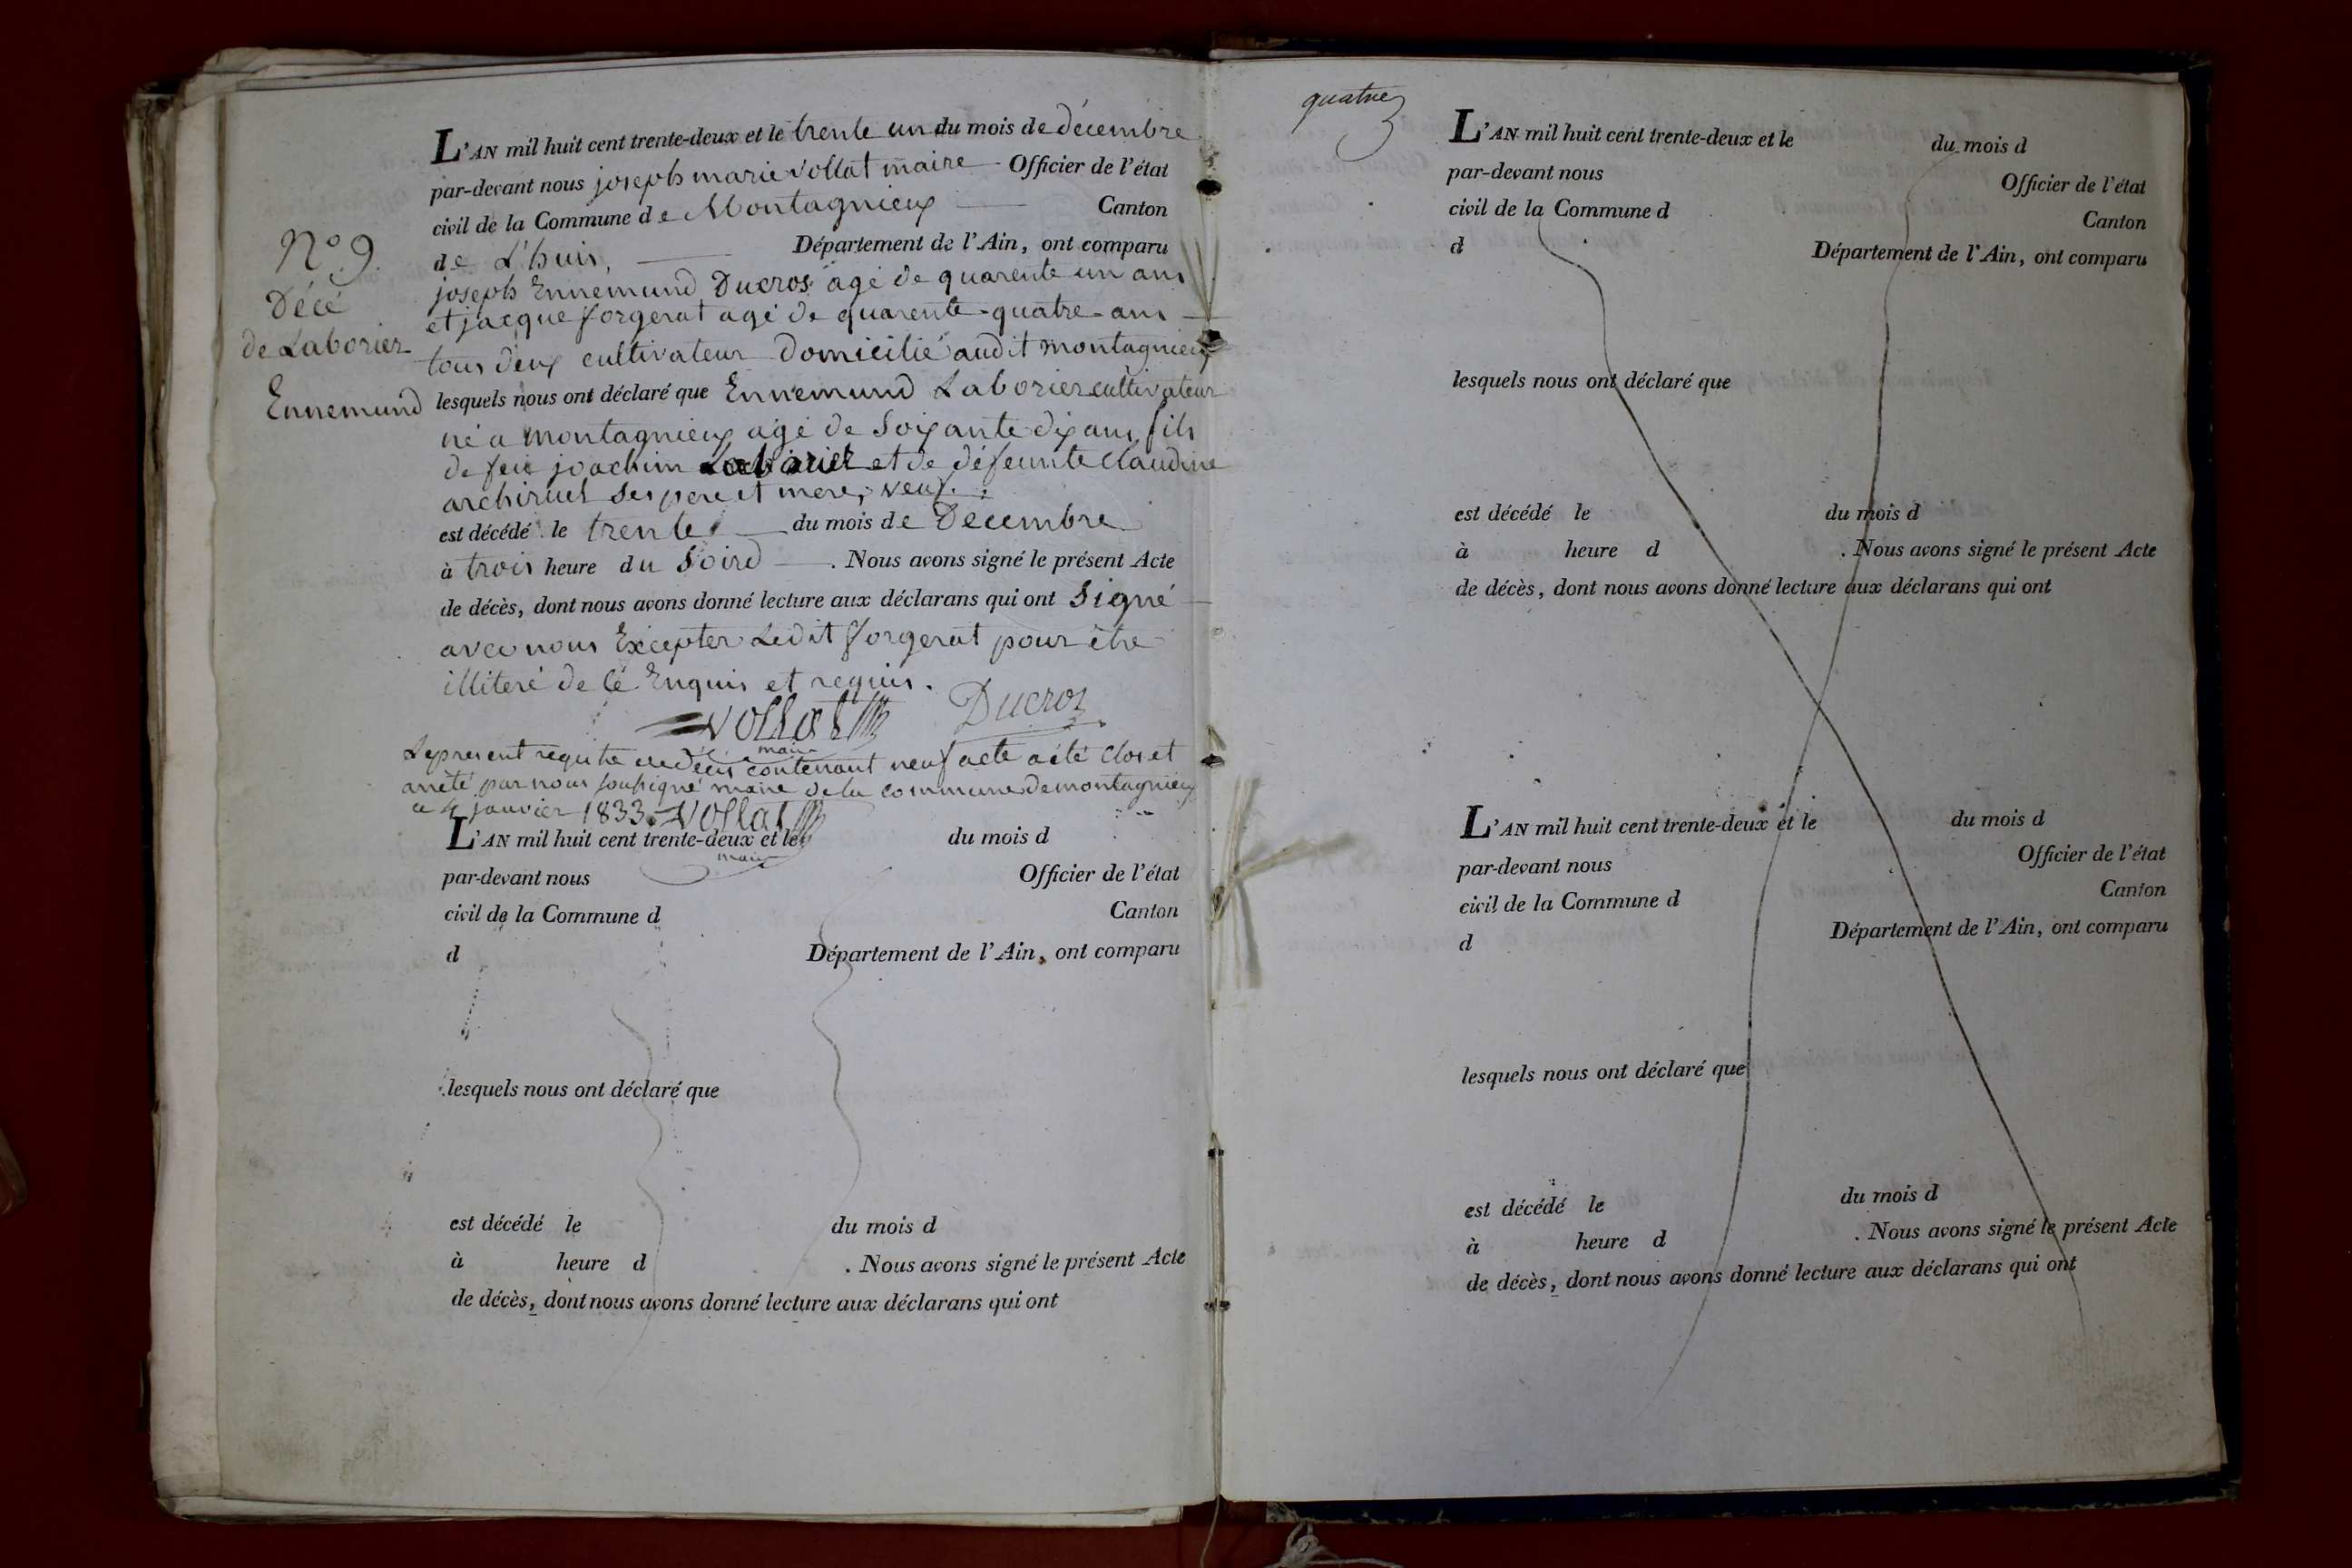 N° 9.
Décé
de Laborier
Ennemund
L'AN mil huit cent trente-deux et le trente un du mois de décembre
par-devant nous joseph marie Vollat maire Officier de l'état
civil de la Commune de Montagnieux Canton
de L'huis, Département de l'Ain, ont comparu
joseph Ennemund Ducros agé de quarente un ans
et jacque forgerat agé de quarente-quatre-ans
tous deux cultivateur Domicilié audit montagnieux
lesquels nous ont déclaré que Ennemund Laborier cultivateur
né a montagnieux agé de Soixante dix ans, fils
de feu joachim Laborier et de défeunte Claudine
ses pere et mere, veuf.
est décédé le trente du mois de Décembre
à trois heure du Soird . Nous avons signé le présent Acte
de décès, dont nous avons donné lecture aux déclarans qui ont Signé
avec nous Excepter Ledit forgerat pour être
illiteré de cé Enquis et requis.
Vollat Ducros
maire
Le present regitre de décis contenant neuf acte a été Clos et
arrêté par nous soussigné maire de la commune de montagnieux
ce 4 janvier 1833. Vollat
maire
L'AN mil huit cent trente-deux et le du mois d
par-devant nous Officier de l'état
civil de la Commune d Canton
d Département de l'Ain, ont comparu
lesquels nous ont déclaré que
est décédé le du mois d
à heure d . Nous avons signé le présent Acte
de décès, dont nous avons donné lecture aux déclarans qui ont
quatre
L'AN mil huit cent trente-deux et le du mois d
par-devant nous Officier de l'état
civil de la Commune d Canton
d Département de l'Ain, ont comparu
lesquels nous ont déclaré que
est décédé le du mois d
à heure d . Nous avons signé le présent Acte
de décès, dont nous avons donné lecture aux déclarans qui ont
L'AN mil huit cent trente-deux et le du mois d
par-devant nous Officier de l'état
civil de la Commune d Canton
d Département de l'Ain, ont comparu
lesquels nous ont déclaré que
est décédé le du mois d
à heure d . Nous avons signé le présent Acte
de décès, dont nous avons donné lecture aux déclarans qui ont